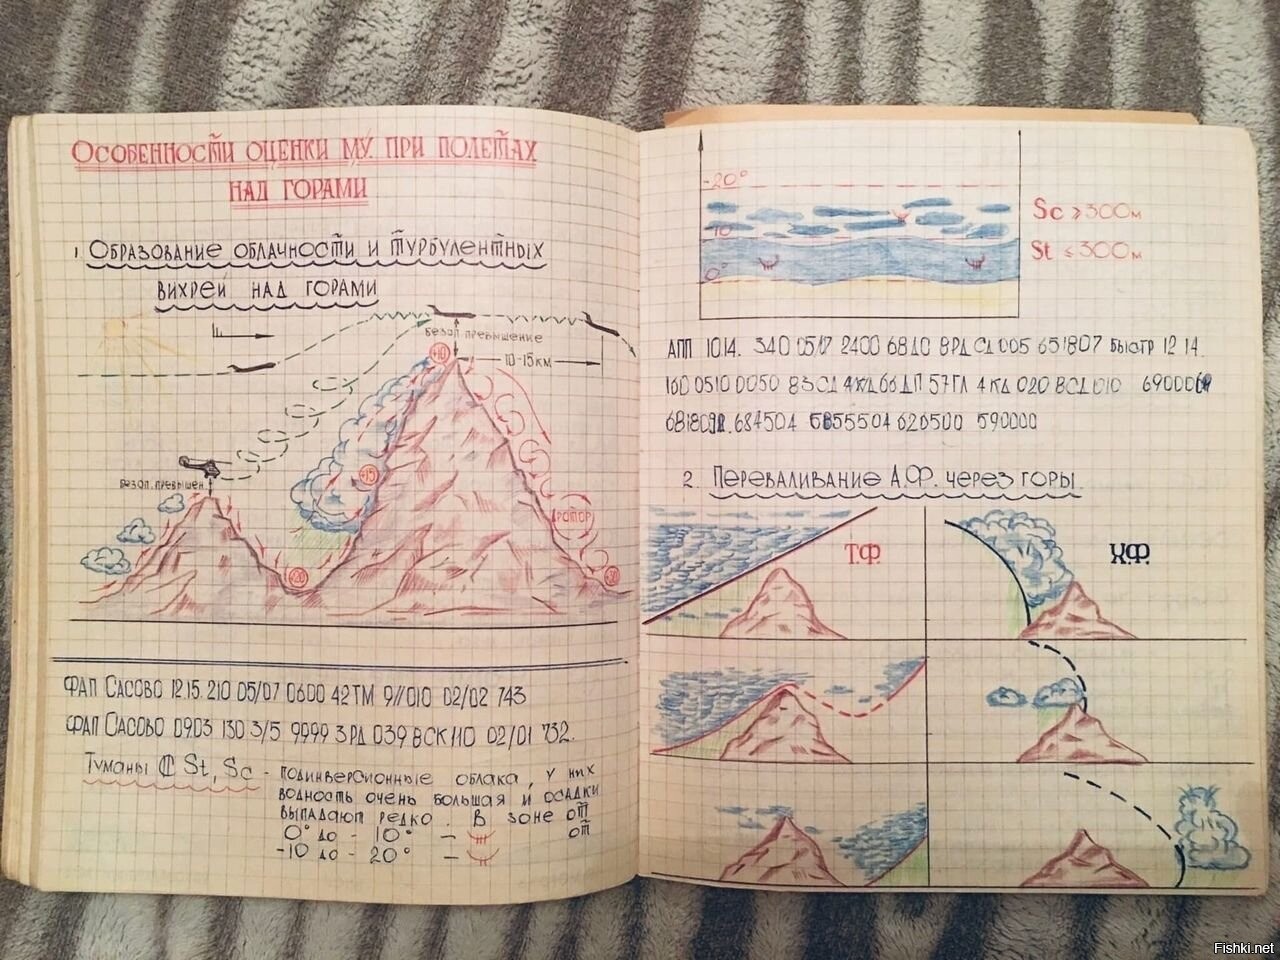 Особенности оценки МУ при полетах
над горами
1. Образование облачности и турбулентных
вихрей над горами
безоп. превышение
10-15км
+10
безоп. превышен.
+15
ротор
+20
+30
ФАП Сасово 12.15. 210 05/07 0600 42ТМ 9//010 02/02 743
ФАП Сасово 09.03 130 3/5 9999 3РД 039 8СК110 02/01 732.
Туманы St, Sc - подинверсионные облака, у них
водность очень большая и осадки
выпадают редко. В зоне от
0° до - 10° - от
-10 до - 20° -
-20°
-10°
0°
Sc ≥300м
St ≤300м
АПП 1014. 340 05/7 2400 68ДО 8РД СД005 651807 быстр 12 14.
160 0510 0050 83СД 4КД66ДП 57ГЛ 4КД 020 8СД010
684504 620500 590000
2. Переваливание А.Ф. через горы.
Т.Ф.
Х.Ф.
Fishki.net